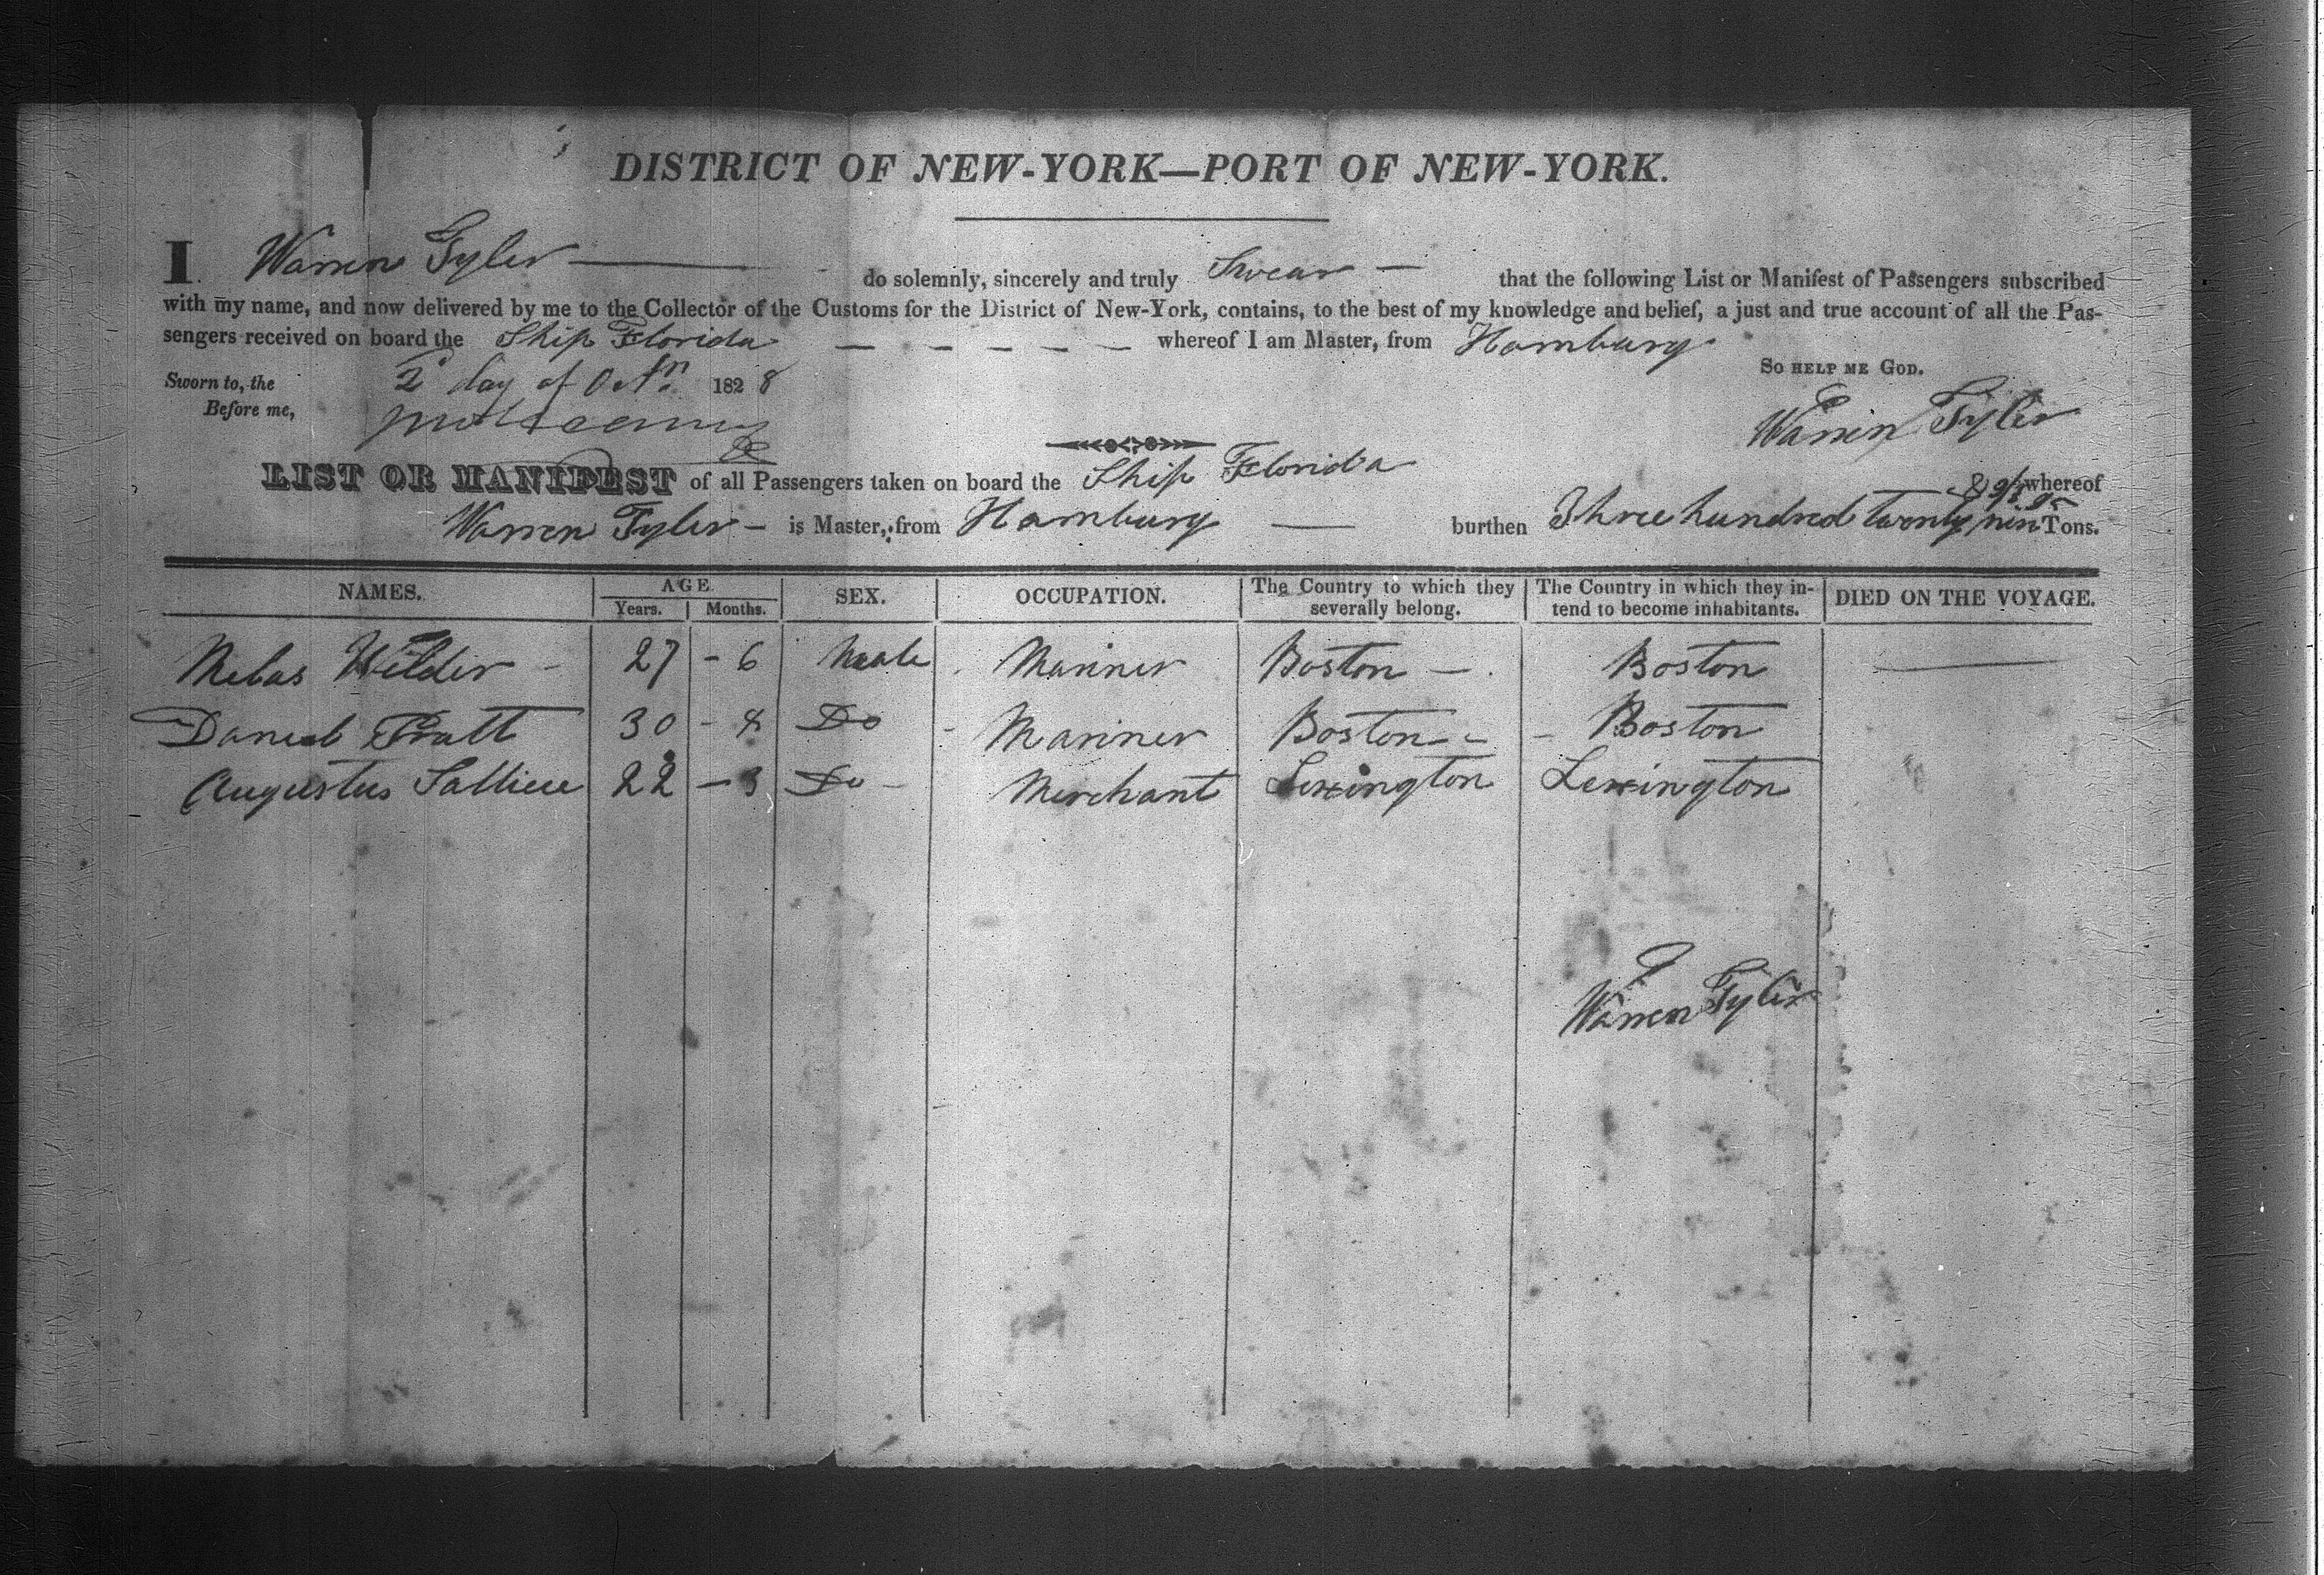 DISTRICT OF NEW-YORK—PORT OF NEW-YORK.
I Warren Tyler — do solemnly, sincerely and truly Swear — that the following List or Manifest of Passengers subscribed
with my name, and now delivered by me to the Collector of the Customs for the District of New-York, contains, to the best of my knowledge and belief, a just and true account of all the Pas-
sengers received on board the Ship Florida — — — — — whereof I am Master, from Hamburg
So help me God.
Sworn to, the 2 day of 1828
Before me,
Warren Tyler
LIST OR MANIFEST of all Passengers taken on board the Ship Florida whereof
Warren Tyler — is Master, from Hamburg — burthen Three hundred twenty nine Tons.
NAMES. AGE. SEX. OCCUPATION. The Country to which they severally belong. The Country in which they in-tend to become inhabitants. DIED ON THE VOYAGE.
Years. Months.
Wilder - 27 - 6 Male Mariner Boston — Boston —
Daniel Pratt 30 - 8 Do - Mariner Boston - - Boston
Augustus 22 - 3 Do - Merchant Lexington Lexington
Warren Tyler